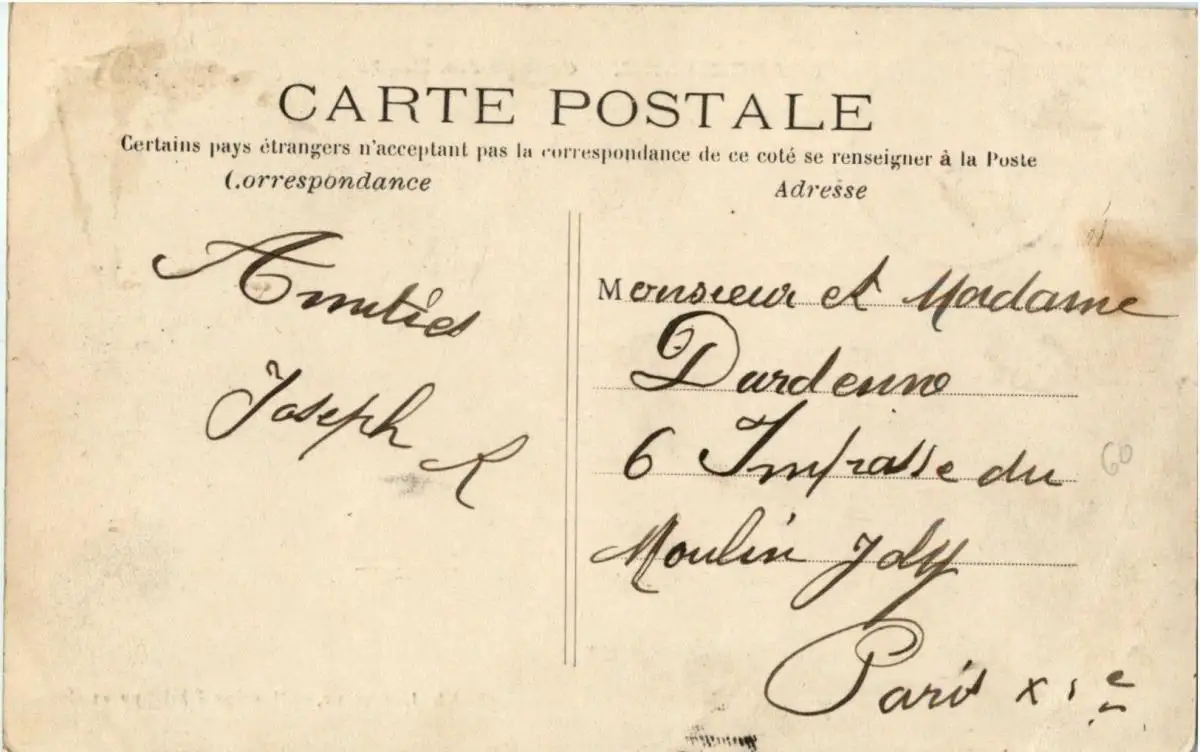 CARTE POSTALE
Certains pays étrangers n'acceptant pas la correspondance de ce coté se renseigner à la Poste
Correspondance
Adresse
Amitiés
Joseph R
Monsieur et Madame
Dardenne
6 Impasse du
Moulin Joly
Paris XIe
60